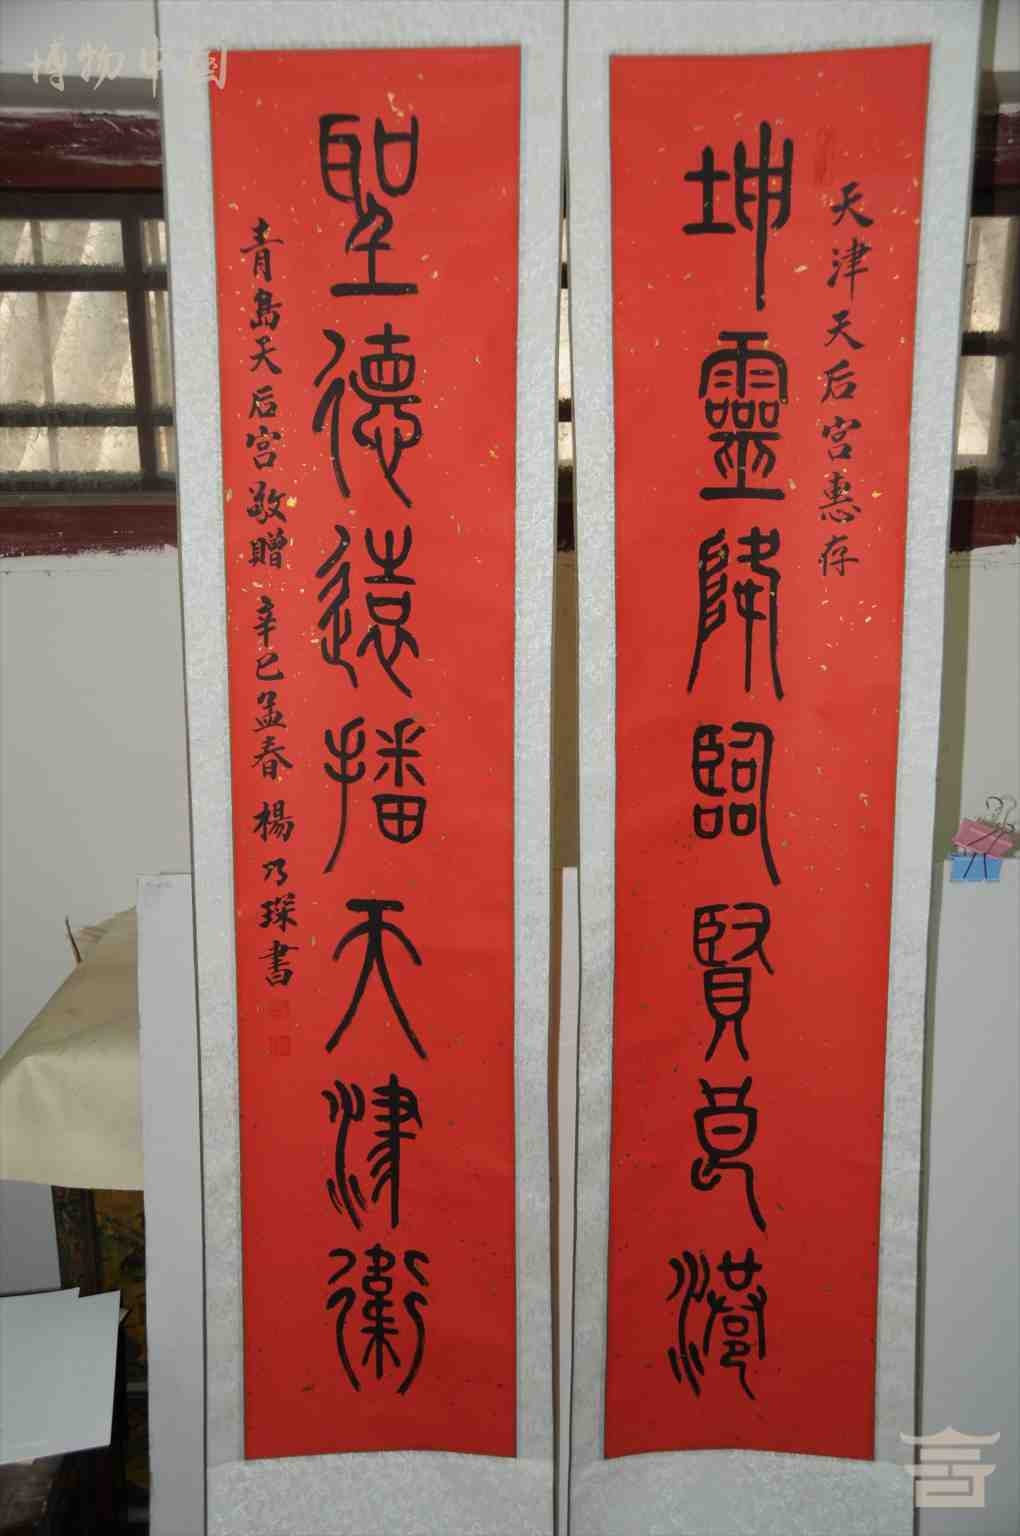 天津天后宮惠存
坤靈降臨賢良港
聖德遠播天津衛
青島天后宮敬贈 辛巳孟春 楊乃琛書
博物中国